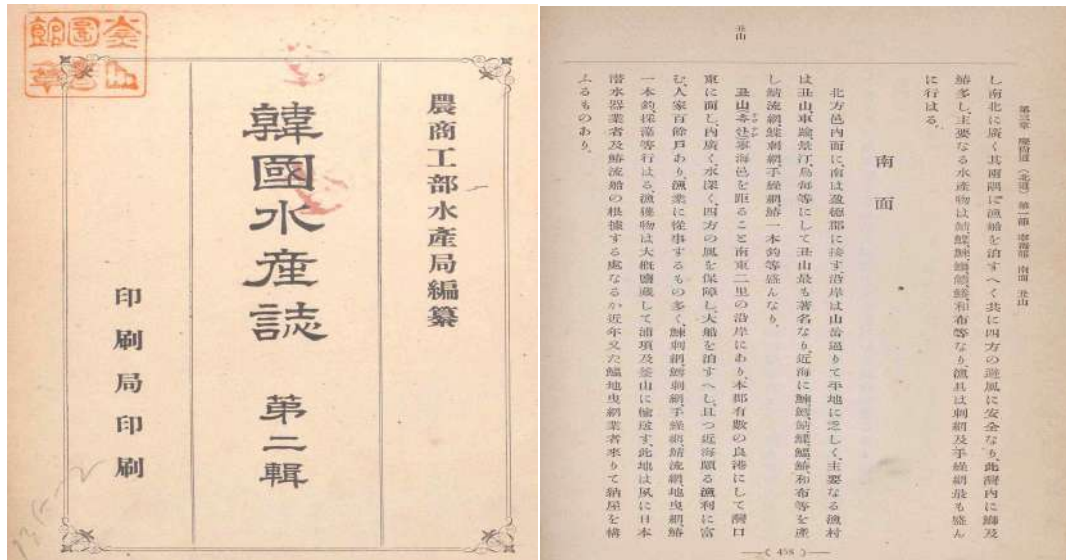 釜山圖書館章
農商工部水產局編纂
韓國水産誌 第二輯
印刷局印刷
第三章 慶尚道(北道) 第一部 寧海郡 南面 丑山
し南北に廣く其兩隅に漁船を泊すへく共に四方の避風に安全なり、此灣内に鰤及
鰆多し、主要なる水産物は
和布等なり、漁具は刺網及手繰網最も盛ん
に行はる、
南面
北方邑内面に、南は盈德郡に接す、沿岸は山岳逼りて平地に乏しく、主要なる漁村
は丑山、車踰、景汀、烏每等にして丑山最も著名なり、近海に
和布等を産
し鯖流網、鰈刺網、手繰網、鰆一本釣等盛んなり、
丑山
丑山(축산)寧海邑を距ること南東二里の沿岸にあり、本郡有數の良港にして灣口
東に面し、内廣く、水深く、四方の風を保障し、大船を泊すへし、且つ近海頗る漁利に富
む、人家百餘戸あり、漁業に從事するもの多く、鰊刺網、鱈刺網、手繰網、鯖流網、地曳網、鰆
一本釣、採藻等行はる、漁獲物は大概鹽藏して浦項及釜山に輸送す、此地は夙に日本
潜水器業者及鰆流船の根據する處なるか近年又た鰮地曳網業者來りて納屋を構
ふるものあり、
458